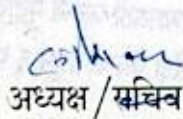 अध्यक्ष/सचिव